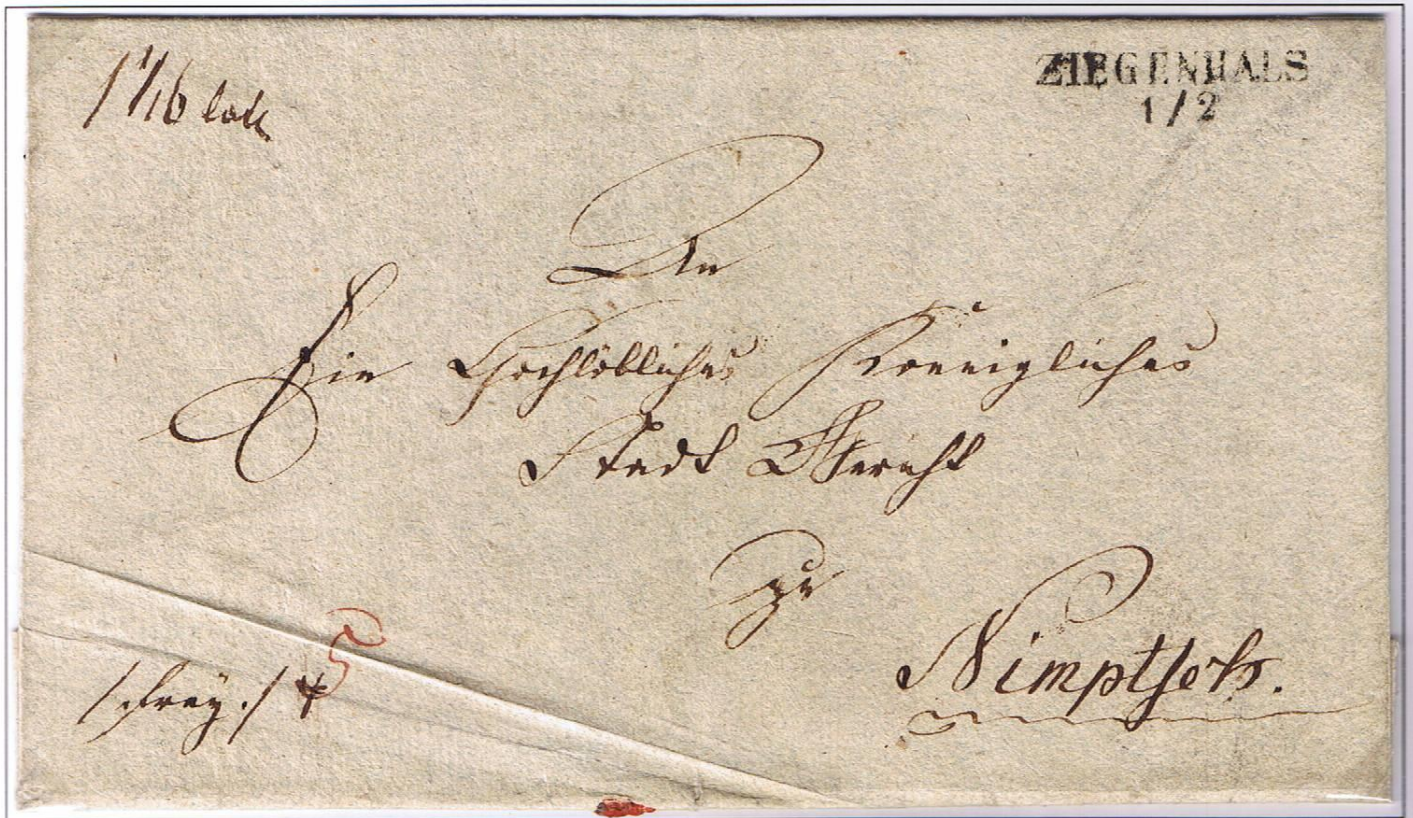 1 1/16 loth
ZIEGENHALS
1/2
An
Ein Hochlöbliches Koenigliches
Stadt Gericht
zu
Nimptsch.
/:frey:/ 5